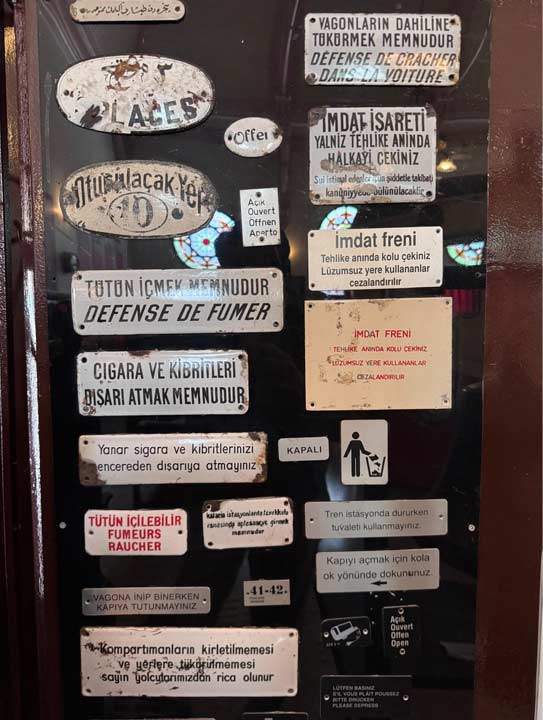 PLACES
Offer
Oturulaçak Yer
10
Açık
Ouvert
Öffnen
Aperto
TÜTÜN İÇMEK MEMNUDUR
DÉFENSE DE FUMER
CİGARA VE KİBRİTLERİ
DIŞARI ATMAK MEMNUDUR
Yanar sigara ve kibritlerinizi
encereden dışarıya atmayınız
KAPALI
TÜTÜN İÇİLEBİLİR
FUMEURS
RAUCHER
memnudur
VAGONA İNİP BİNERKEN
KAPIYA TUTUNMAYINIZ
41-42
Kompartımanların kirletilmemesi
ve yerlere tükürülmemesi
sayın yolcularımızdan rica olunur
VAGONLARIN DAHİLİNE
TÜKÖRMEK MEMNUDUR
DÉFENSE DE CRACHER
DANS LA VOITURE
İMDAT İŞARETİ
YALNIZ TEHLİKE ANINDA
HALKAYI ÇEKİNİZ
Sui istimal edenler için şiddetle takibatı
kanuniyyede bulunulacaktır
İmdat freni
Tehlike anında kolu çekiniz
Lüzumsuz yere kullananlar
cezalandırılır
İMDAT FRENİ
TEHLİKE ANINDA KOLU ÇEKİNİZ
LÜZUMSUZ YERE KULLANANLAR
CEZALANDIRILIR
Tren istasyonda dururken
tuvaleti kullanmayınız.
Kapıyı açmak için kola
ok yönünde dokununuz.
Açık
Ouvert
Offen
Open
LÜTFEN BASINIZ
S'IL VOUS PLAÎT POUSSEZ
BITTE DRÜCKEN
PLEASE DEPRESS